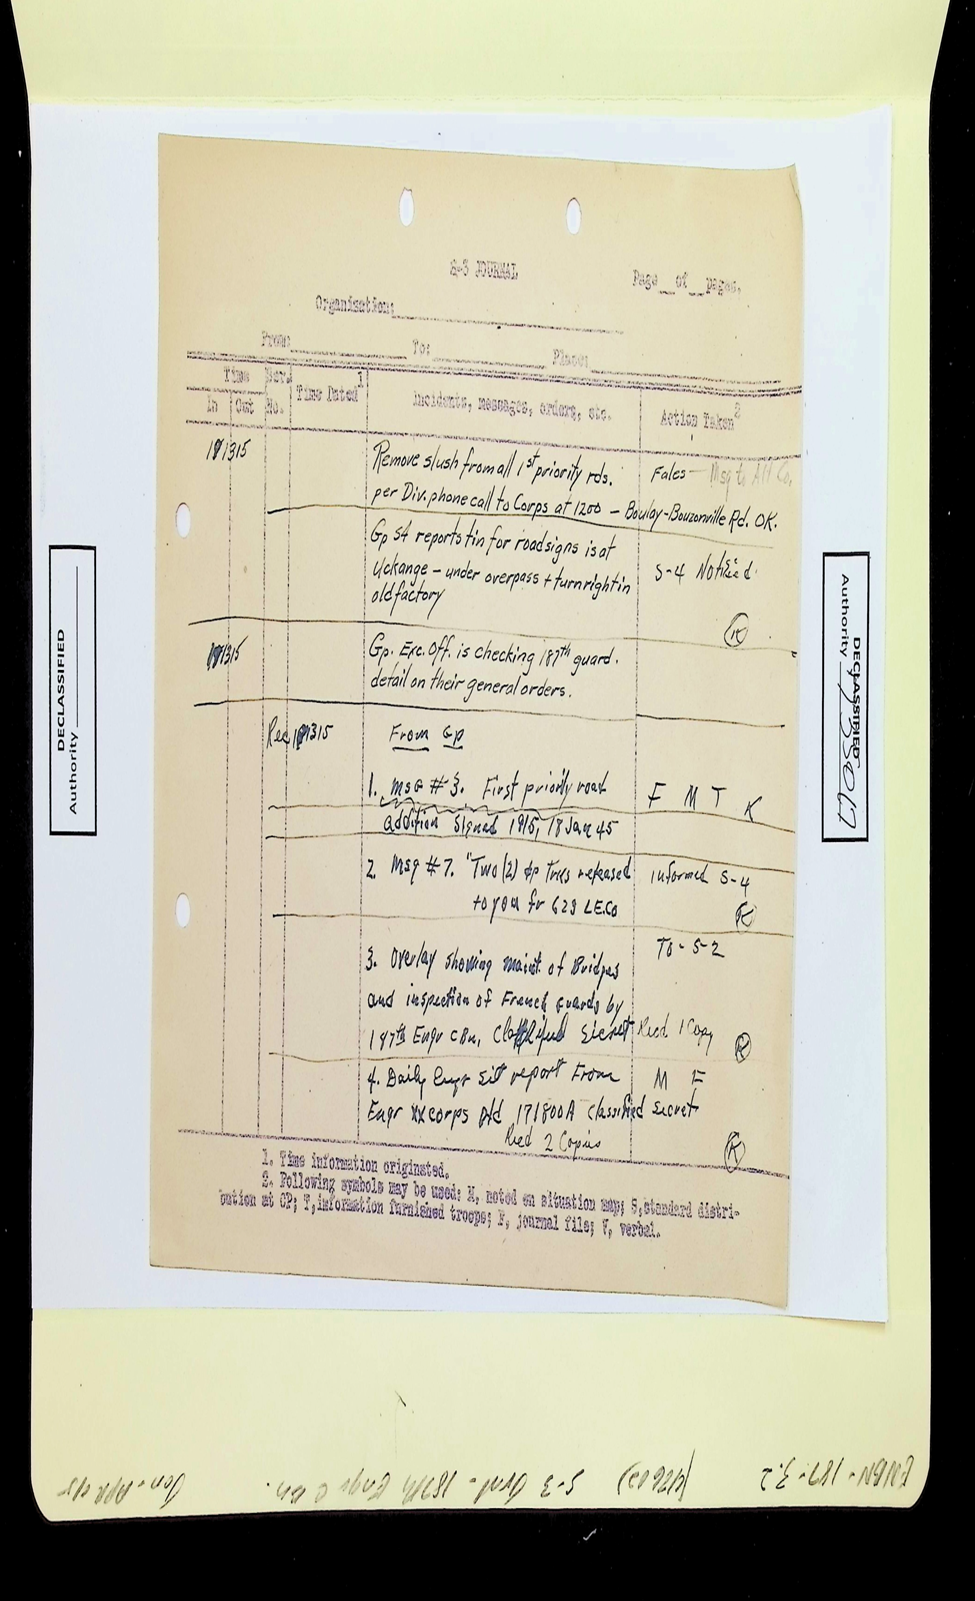 S-3 JOURNAL
Page__of__pages.
Organization:
From: To: Place:
Time Ser. Time Dated 1 Incidents, messages, orders, etc. Action Taken 2
In Out No.
181315 Remove slush from all 1st priority rds. Fales - Msg to All Co.
per Div. phone call to Corps at 1200 - Boulay-Bouzonville Rd. OK.
Gp S4 reports tin for roadsigns is at
Uckange - under overpass + turn right in S-4 Notified.
old factory
K
181315 Gp. Exc. Off. is checking 187th guard.
detail on their general orders.
Rec 181315 From Gp
1. Msg #3. First priority road F M T K
addition Signed 1915, 18 Jan 45
2. Msg #7. "Two (2) dp Trks released informed S-4
to you fr 623 LE.Co K
3. Overlay showing maint. of Bridges To - S-2
and inspection of French guards by
187th Engr C Bn. Classified Secret Recd 1 Copy K
4. Daily Engr Sit report From M F
Engr XX corps dtd 171800A classified Secret
Recd 2 Copies K
1. Time information originated.
2. Following symbols may be used: M, noted on situation map; S, standard distri-
bution at CP; T, information furnished troops; F, journal file; V, verbal.
DECLASSIFIED
Authority
DECLASSIFIED
Authority
ENBN-187-3.2 S-3 Jrnl - 187th Engr C Bn. Jan-Apr 45